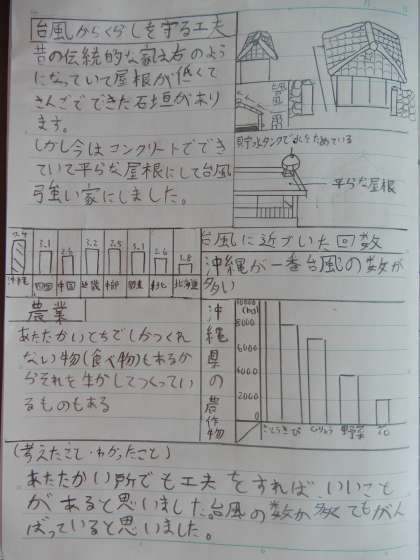 台風からくらしを守る工夫
昔の伝統的な家は右のよう
になっていて屋根が低くて
さんごでできた石垣があり
ます。
しかし今はコンクリートででき
ていて平らな屋根にして台風
強い家にしました。
貯水タンクで水をためている
平らな屋根
台風に近づいた回数
沖縄が一番台風の数が
多い
7.4
3.1
3.2
3.1
2.6
1.8
沖縄
四国
中国
北陸
関東
東北
北海道
農業
あたたかいとちでしかつくれ
ない物(食べ物)もあるか
らそれを生かしてつくってい
るものもある
沖縄県の農作物
10000
(ha)
8000
6000
4000
2000
0
さとうきび
しりょう
野菜
花
(考えたこと・わかったこと)
あたたかい所でも工夫をすれば、いいこと
があると思いました。台風の数が多くてもがん
ばっていると思いました。